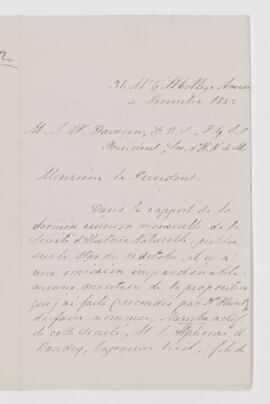 36 McGill College Avenue
2 Novembre 1882
M. J. W. Dawson, F.R.S., F.G.S.
Président, Soc. d'H. N. de M.
Monsieur le Président.
Dans le rapport de la
dernière réunion mensuelle de la
Société d'Histoire Naturelle, publié
dans le Star du, il y a
une omission impardonnable:
aucune mention de la proposition
que j'ai faite (secondée par Dr
de faire nommer Membre actif
de cette société, M. Alphonse
Baudry, Ingénieur Civil, fils de